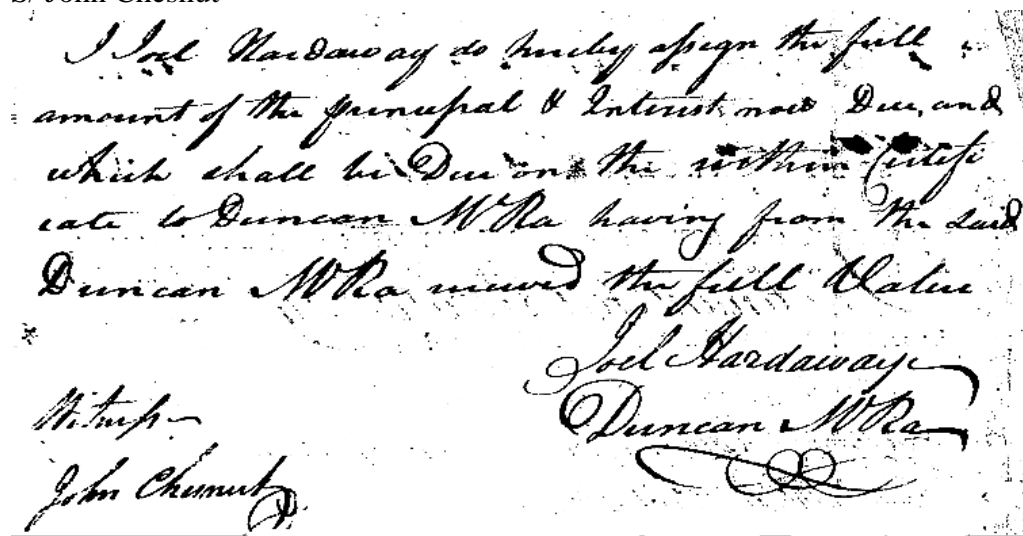 S/ John Chesnut
I Joel Hardaway do hereby assign the full
amount of the principal & Interest now Due, and
which shall be Due on the within Certifi
cate to Duncan McRa having from the said
Duncan McRa received the full Value
Joel Hardaway
Duncan McRa
Witness
John Chesnut